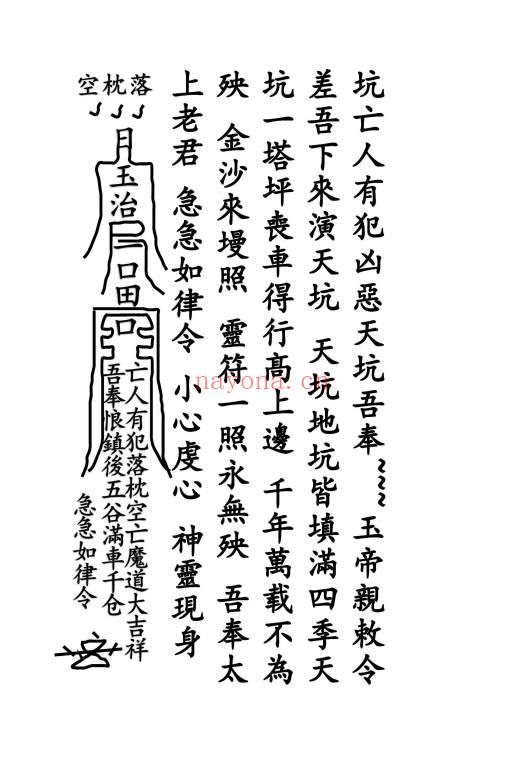 坑亡人有犯凶惡天坑吾奉 玉帝親敕令
差吾下來演天坑 天坑地坑皆填滿四季天
坑一塔坪喪車得行高上邊 千年萬載不為
殃 金沙來墁照 靈符一照永無殃 吾奉太
上老君 急急如律令 小心虔心 神靈現身
落枕空
月
玉治
口田
口
亡人有犯落枕空亡魔道大吉祥
吾奉恨鎮後五谷滿車千仓
急急如律令
nayona.cn